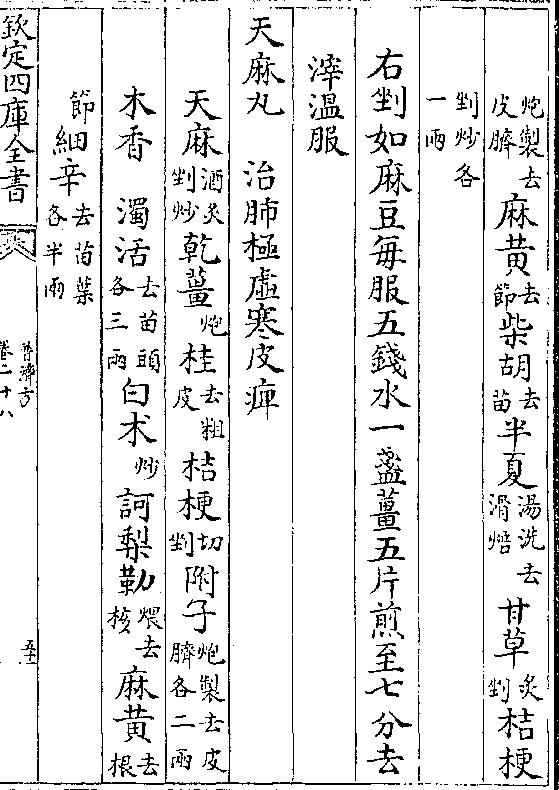 炮製去皮臍麻黄去節柴胡去苗半夏湯洗去滑焙甘草炙剉桔梗
剉炒各一兩
右剉如麻豆每服五錢水一盞薑五片煎至七分去
滓温服
天麻丸　治肺極虛寒皮痺
天麻酒炙剉炒乾薑炮桂去粗皮桔梗切剉附子炮製去皮臍各二兩
木香　濁活去苗頭各三兩白术炒訶梨勒煨去核麻黄去根
節細辛去苗葉各半兩
欽定四庫全書
普濟方
卷二十八